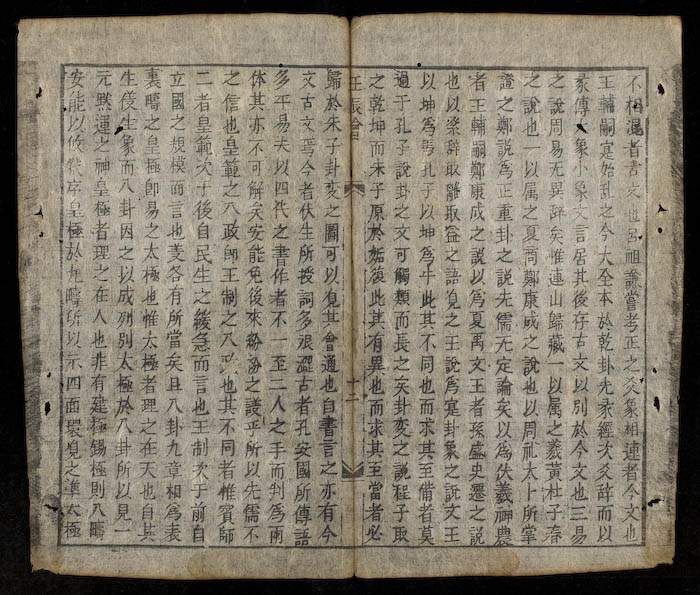 不相混者古文也呂祖謙嘗考正之爻象相連者今文也
王輔嗣寔始乱之今大全本於乾卦先彖經次爻辞而以
彖傳大象小象文言居其後存古文以別於今文也三易
之說周易无異辞矣惟連山歸藏一以属之羲黃杜子春
之說也一以属之夏商鄭康成之說也以周礼太卜所掌
證之鄭說爲正重卦之說先儒无定論矣以爲伏羲神農
者王輔嗣鄭康成之說以爲夏禹文王者孫盛史遷之說
也以繫辞取離取益之語見之王說爲寔卦象之說文王
以坤爲馬孔子以坤爲牛此其不同也而求其至備者莫
過于孔子說卦之文可觸類而長之矣卦変之說程子取
之乾坤而朱子原於姤復此其有異也而求其至當者必
壬辰會
十二
歸於朱子卦変之圖可以見其會通也自書言之亦有今
文古文焉今者伏生所授詞多艰澀古者孔安國所傳語
多平易夫以四代之書作者不一至二人之手而判爲兩
体其亦不可解矣安能免後來紛紛之議乎所以先儒不
之信也皇範之八政師王制之八政也其不同者惟賓師
二者皇範次于後自民生之緩急而言也王制次于前自
立國之規模而言也爰各有所當矣且八卦九章相爲表
裏疇之皇極卽易之太極也惟太極者理之在天也自其
生儀生象而八卦因之以成列別太極於八卦所以見一
元黙運之神皇極者理之在人也非有建極錫極則八疇
安能以攸敘卒皇極於九疇所以示四面環見之準太極